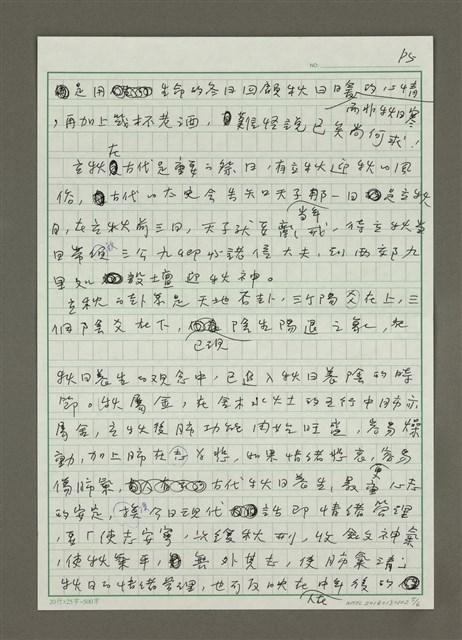 P5
NO.
是用生命的冬日回顧秋日暖的心情
而非秋日寒
，再加上幾杯老酒，難怪說已矣尚何求！
立秋在古代是重要的節日，有立秋迎秋的風
俗，古代的太史會告知天子那一日是立秋
日，在立秋前三日，天子就要齋戒，待立秋當
日帶領三公九卿諸侯大夫，到西郊九
里處設土壇迎秋神。
立秋的卦象是天地否卦，三個陽爻在上，三
個陰爻在下，已現陰生陽退之氣，在
秋日養生的觀念中，已進入秋日養陰的時
節。秋屬金，在金木水火土的五行中肺亦
屬金，立秋後肺功能開始旺盛，容易燥
動，加上肺在志為悲，如果情緒悲哀，容易
傷肺氣，古代秋日養生，最重心志
的安定，換今日現代話即情緒管理，
要「使志安寧，以緩秋刑，收斂神氣
，使秋氣平，無外其志，使肺氣清」
秋日的情緒管理，也可反映在中年後的
人在
20行×25字=500字